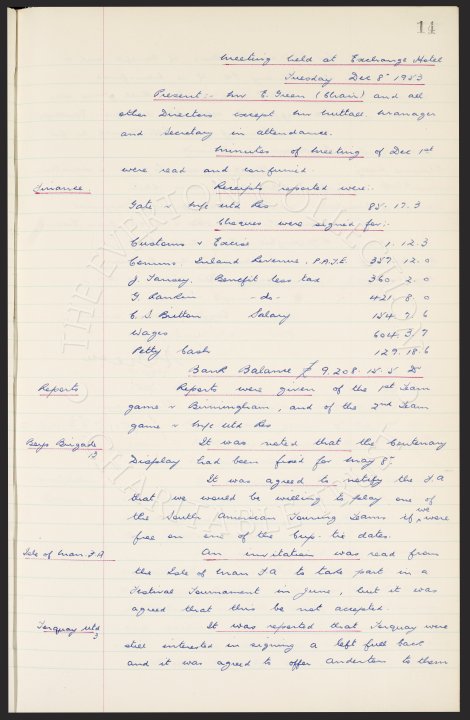 14
Meeting held at Exchange Hotel
Tuesday Dec 8th 1953
Present:- Mr E. Green (Chair) and all
other Directors except Mr Nuttall. Manager
and Secretary in attendance.
Minutes of Meeting of Dec 1st
were read and confirmed.
Finance. Receipts reported were:-
Gate v M/c Utd Res 85. 17. 3
Cheques were signed for:-
Customs & Excise 1. 12. 3
Comms. Inland Revenue. P.A.Y.E. 357. 12. 0
J. Tansey. Benefit less tax 360. 2. 0
G. Rankin - do - 421. 8. 0
C. S. Britton Salary 154. 7. 6
Wages 604. 3. 7
Petty Cash 129. 18. 6
Bank Balance £ 9,208. 15. 5
Reports Reports were given of the 1st Team
game v Birmingham, and of the 2nd Team
game v M/c Utd Res
Boys Brigade It was noted that the Centenary
Display had been fixed for May 8th.
It was agreed to notify the F.A
that we would be willing to play one of
the South American Touring Teams if we were
free on one of the Cup-tie dates.
Isle of Man F.A An invitation was read from
the Isle of Man F.A to take part in a
Festival Tournament in June, but it was
agreed that this be not accepted.
Torquay Utd It was reported that Torquay were
still interested in signing a left full back
and it was agreed to offer Anderton to them
© THE EVERTON COLLECTION CHARITABLE